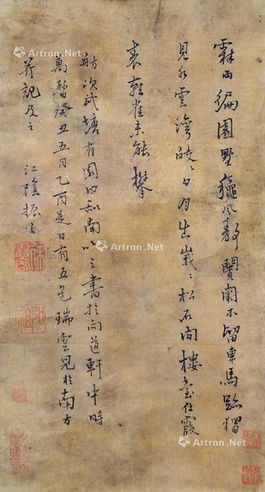 霖雨編園墅風賢不留車馬跡猶
見水雲灣皎〻日月出巖〻松石間樓臺任霞
表鶴雀未能攀
舫次武塘有園田和南以之書於向道軒中時
萬曆癸丑五月乙酉是日有五色瑞雲見於南方
并記及之 江陰振
Artron.Net
Artron.Net
Artron.Net